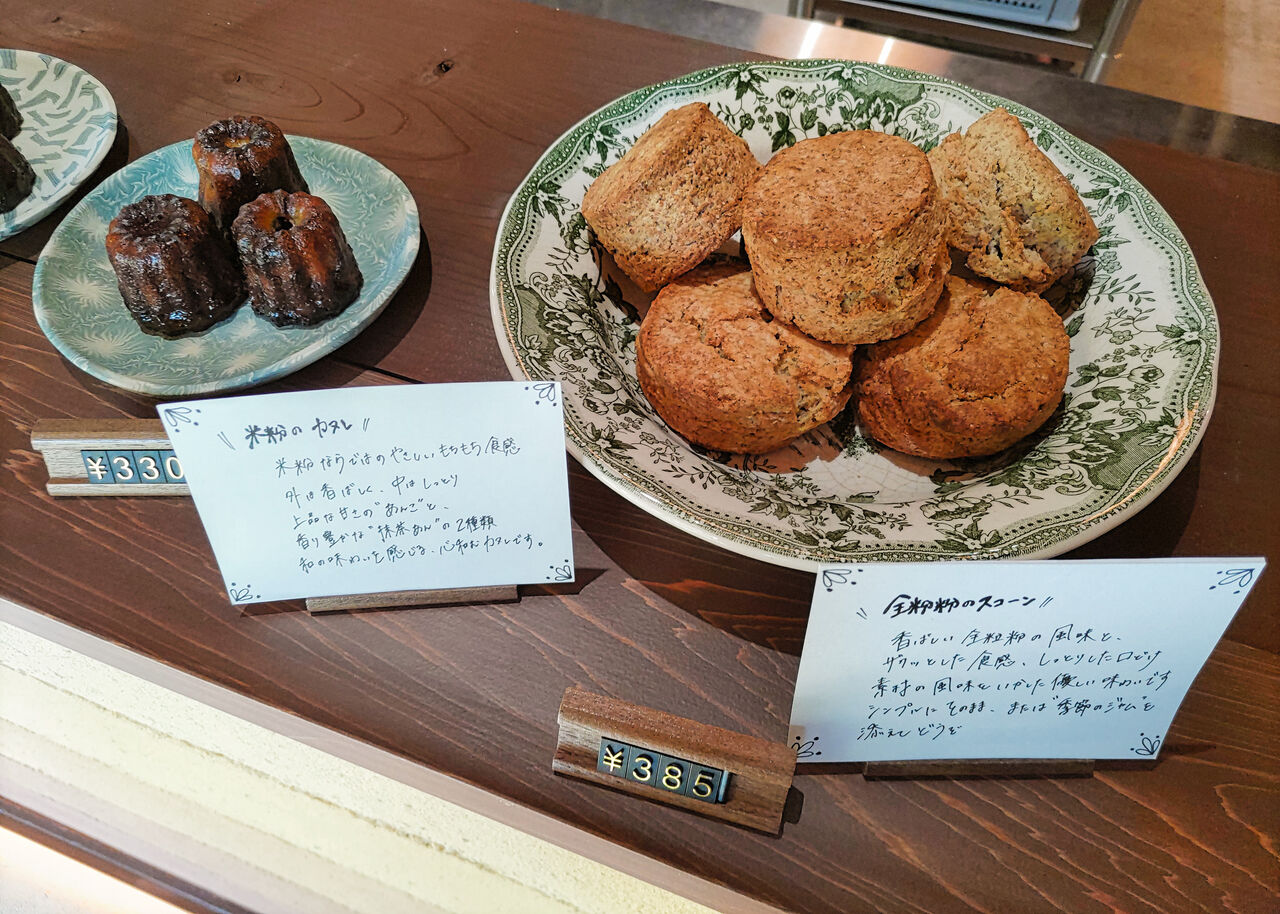 米粉のカヌレ
米粉ならではのやさしいもちもち食感
外は香ばしく、中はしっとり
上品な甘さの"あんこ"と、
香り豊かな"抹茶あん"の2種類
和の味わいを感じる、心和むカヌレです。
¥330
全粒粉のスコーン
香ばしい全粒粉の風味と、
ザクッとした食感、しっとりした口どけ
素材の風味をいかした優しい味わいです
シンプルにそのまま、または"季節のジャム"を
添えてどうぞ
¥385